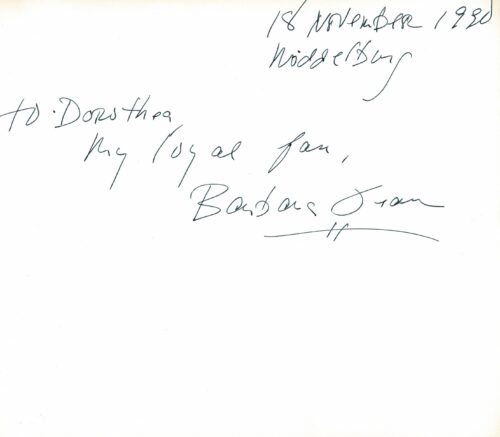 18 November 1990
Middelburg
to Dorothea,
My loyal fan,
Barbara